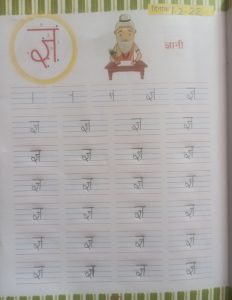 दिनांक 1-2-22
ज्ञ
ज्ञानी
ज्ञ ज्ञ
ज्ञ ज्ञ ज्ञ ज्ञ
ज्ञ ज्ञ ज्ञ ज्ञ
ज्ञ ज्ञ ज्ञ ज्ञ
ज्ञ ज्ञ ज्ञ ज्ञ
ज्ञ ज्ञ ज्ञ ज्ञ
ज्ञ ज्ञ ज्ञ ज्ञ